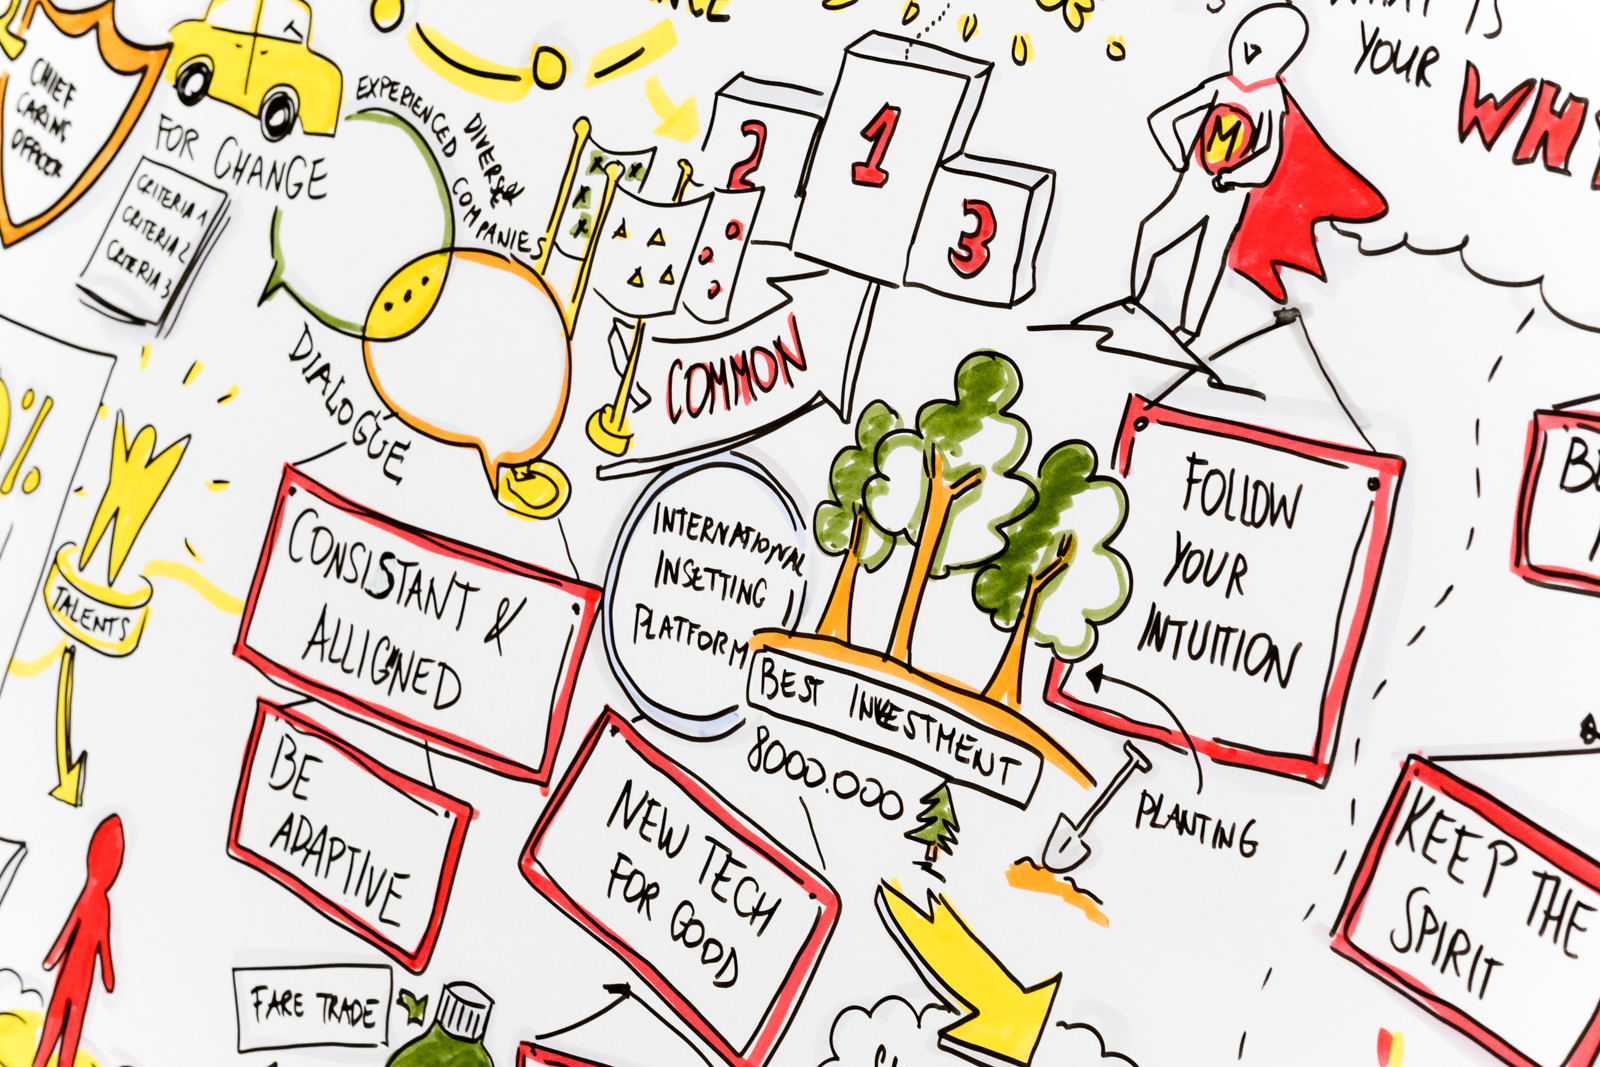 CHIEF
CARING
OFFICER
FOR CHANGE
CRITERIA 1
CRITERIA 2
CRITERIA 3
EXPERIENCED
DIVERSE
COMPANIES
DIALOGUE
2
1
3
COMMON
M
WHAT IS
YOUR
WHY
%
TALENTS
CONSISTANT &
ALLIGNED
BE
ADAPTIVE
INTERNATIONAL
INSETTING
PLATFORM
BEST INVESTMENT
8000.000
PLANTING
FOLLOW
YOUR
INTUITION
NEW TECH
FOR GOOD
KEEP THE
SPIRIT
FARE TRADE